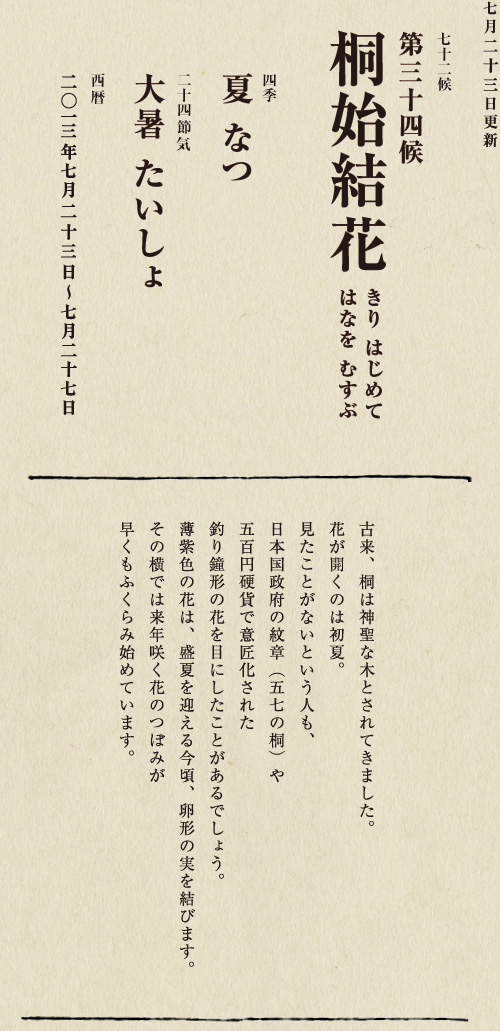 七月二十三日更新
七十二候
第三十四候
桐始結花
きり はじめて
はなを むすぶ
四季
夏 なつ
二十四節気
大暑 たいしょ
西暦
二〇一三年七月二十三日〜七月二十七日
古来、桐は神聖な木とされてきました。
花が開くのは初夏。
見たことがないという人も、
日本国政府の紋章（五七の桐）や
五百円硬貨で意匠化された
釣り鐘形の花を目にしたことがあるでしょう。
薄紫色の花は、盛夏を迎える今頃、卵形の実を結びます。
その横では来年咲く花のつぼみが
早くもふくらみ始めています。